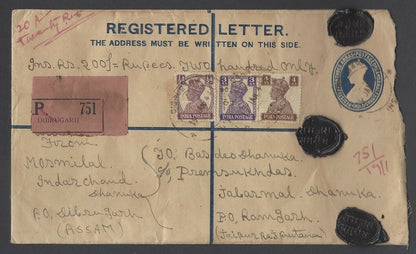 20 A
REGISTERED LETTER.
THE ADDRESS MUST BE WRITTEN ON THIS SIDE.
Ins. Rs. 200/- Rupees Two hundred only.
R 751
DIBRUGARH
INDIA POSTAGE
INDIA POSTAGE
INDIA POSTAGE
From
Indar chand
Dhanuka
P.O. Dibrugarh
(ASSAM)
TO, Basdeo Dhanuka
C/o Premsukhdas
Dhanuka.
P.O, Ramgarh.
(Jaipur Rajputana)
751